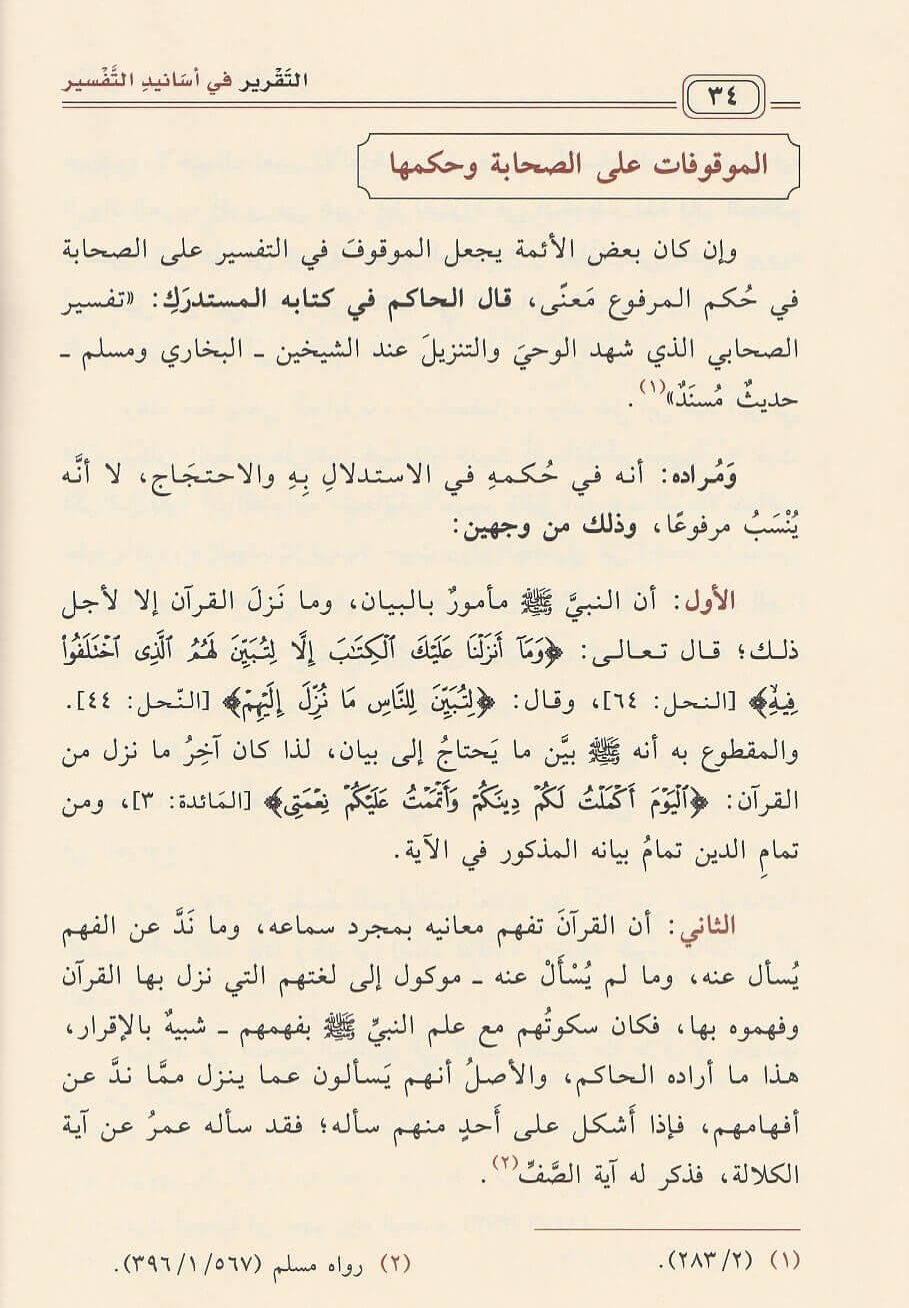 التَقْرير في أسَانيدِ التَّفْسير
٣٤
الموقوفات على الصحابة وحكمها
وإن كان بعض الأئمة يجعل الموقوفَ في التفسير على الصحابة
في حُكم المرفوع مَعنًى، قال الحاكم في كتابه المستدرَكِ: «تفسير
الصحابي الذي شهد الوحيَ والتنزيلَ عند الشيخين ـ البخاري ومسلم ـ
حديثٌ مُسنَدٌ»(١).
وَمُراده: أنه في حُكمهِ في الاستدلالِ بِهِ والاحتجَاج، لا أنَّه
يُنْسَبُ مرفوعًا، وذلك من وجهين:
الأول: أن النبيَّ ﷺ مأمورٌ بالبيان، وما نَزلَ القرآن إلا لأجل
ذلك؛ قال تعالى: ﴿وَمَآ أَنزَلْنَا عَلَيْكَ ٱلْكِتَٰبَ إِلَّا لِتُبَيِّنَ لَهُمُ ٱلَّذِى ٱخْتَلَفُوا۟
فِيهِ﴾ [النحل: ٦٤]، وقال: ﴿لِتُبَيِّنَ لِلنَّاسِ مَا نُزِّلَ إِلَيْهِمْ﴾ [النّحل: ٤٤].
والمقطوع به أنه ﷺ بيَّن ما يَحتاجُ إلى بيان، لذا كان آخِرُ ما نزل من
القرآن: ﴿ٱلْيَوْمَ أَكْمَلْتُ لَكُمْ دِينَكُمْ وَأَتْمَمْتُ عَلَيْكُمْ نِعْمَتِى﴾ [المَائدة: ٣]، ومن
تمامِ الدين تمامُ بيانه المذكور في الآية.
الثاني: أن القرآنَ تفهم معانيه بمجرد سماعه، وما نَدَّ عن الفهم
يُسأل عنه، وما لم يُسْأَلْ عنه ـ موكول إلى لغتهم التي نزل بها القرآن
وفهموه بها، فكان سكوتُهم مع علم النبيِّ ﷺ بفهمهم ـ شبيهٌ بالإقرار،
هذا ما أراده الحاكم، والأصلُ أنهم يَسألون عما ينزل ممَّا ندَّ عن
أفهامهم، فإذا أَشكل على أَحدٍ منهم سأله؛ فقد سأله عمرُ عن آية
الكلالة، فذكر له آية الصَّفِّ(٢).
(١) (٢/ ٢٨٣).
(٢) رواه مسلم (٥٦٧/ ١/ ٣٩٦).